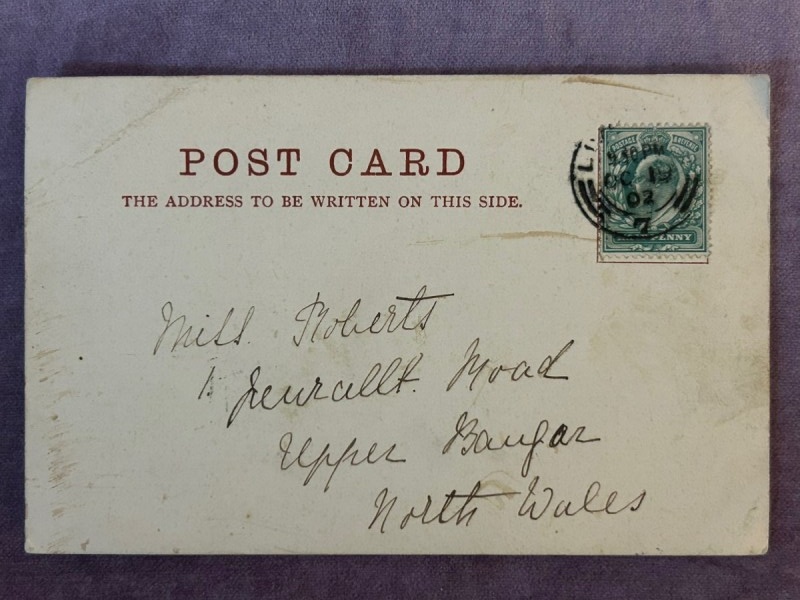 POST CARD
THE ADDRESS TO BE WRITTEN ON THIS SIDE.
POSTAGE REVENUE
9.30 PM
OC 19
02
7
PENNY
Miss. Roberts
1. Road
Upper Bangor
North Wales